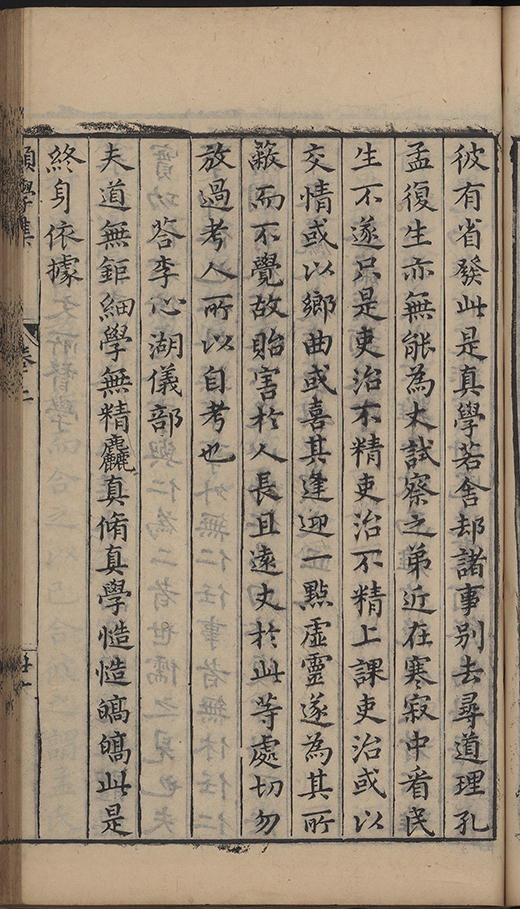 彼有省發此是真學若舍却諸事別去尋道理孔
孟復生亦無能為丈試察之弟近在寒寂中看民
生不遂只是吏治不精吏治不精上課吏治或以
交情或以鄉曲或喜其逢迎一點虛靈遂為其所
蔽而不覺故貽害於人長且遠丈於此等處切勿
放過考人所以自考也
答李心湖儀部
夫道無鉅細學無精麤真脩真學慥慥皜皜此是
終身依據
願學集
卷之二